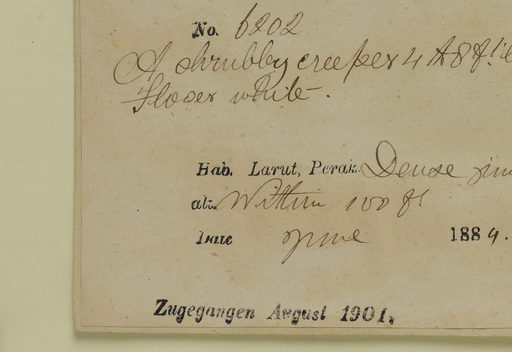 No. 6202
A shrubby creeper 4 to 8 ft
Flower white.
Hab. Larut, Perak. Dense
alt. Within 100 ft
Date June 1884.
Zugegangen August 1901.